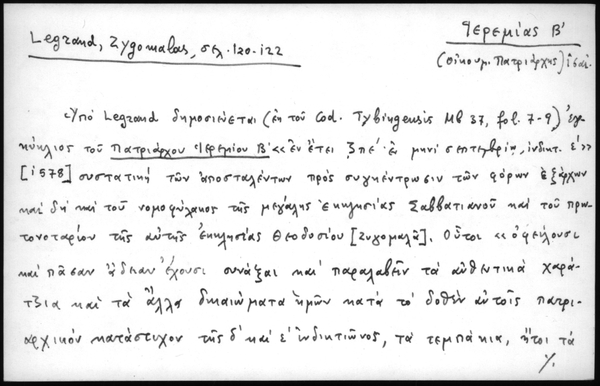 Legrand, Zygomalas, σελ. 120-122
Ἱερεμίας Β'
(Οἰκουμ. Πατριάρχης)
Ὑπό Legrand δημοσιεύεται (ἐκ τοῦ Cod. Tybingensis Mb 37, fol. 7-9,) Ἐγ-
κύκλιος τοῦ Πατριάρχου Ἱερεμίου Β' «ἐν ἔτει ζπε' ἐν μηνί σεπτεμβρίῳ, ἰνδικτ. ς'»
[1578] συστατική τῶν ἀποσταλέντων πρός συγκέντρωσιν τῶν φόρων ἐξάρχων
καί δή καί τοῦ νομοφύλακος τῆς μεγάλης Ἐκκλησίας Σαββατιανοῦ καί τοῦ πρω-
τονοταρίου τῆς αὐτῆς Ἐκκλησίας Θεοδοσίου [Ζυγομαλᾶ]. Οὗτοι «ὀφείλουσι
καί πᾶσαν ἄδειαν ἔχουσι συνάξαι καί παραλαβεῖν τά αὐθεντικά χαρά-
τζια καί τά ἄλλα δικαιώματα ἡμῶν κατά τό δοθέν αὐτοῖς πατρι-
αρχικόν κατάστιχον τῆς δ' καί ε' ἰνδικτιῶνος, τά τεμπάκια, ἤτοι τά
./.